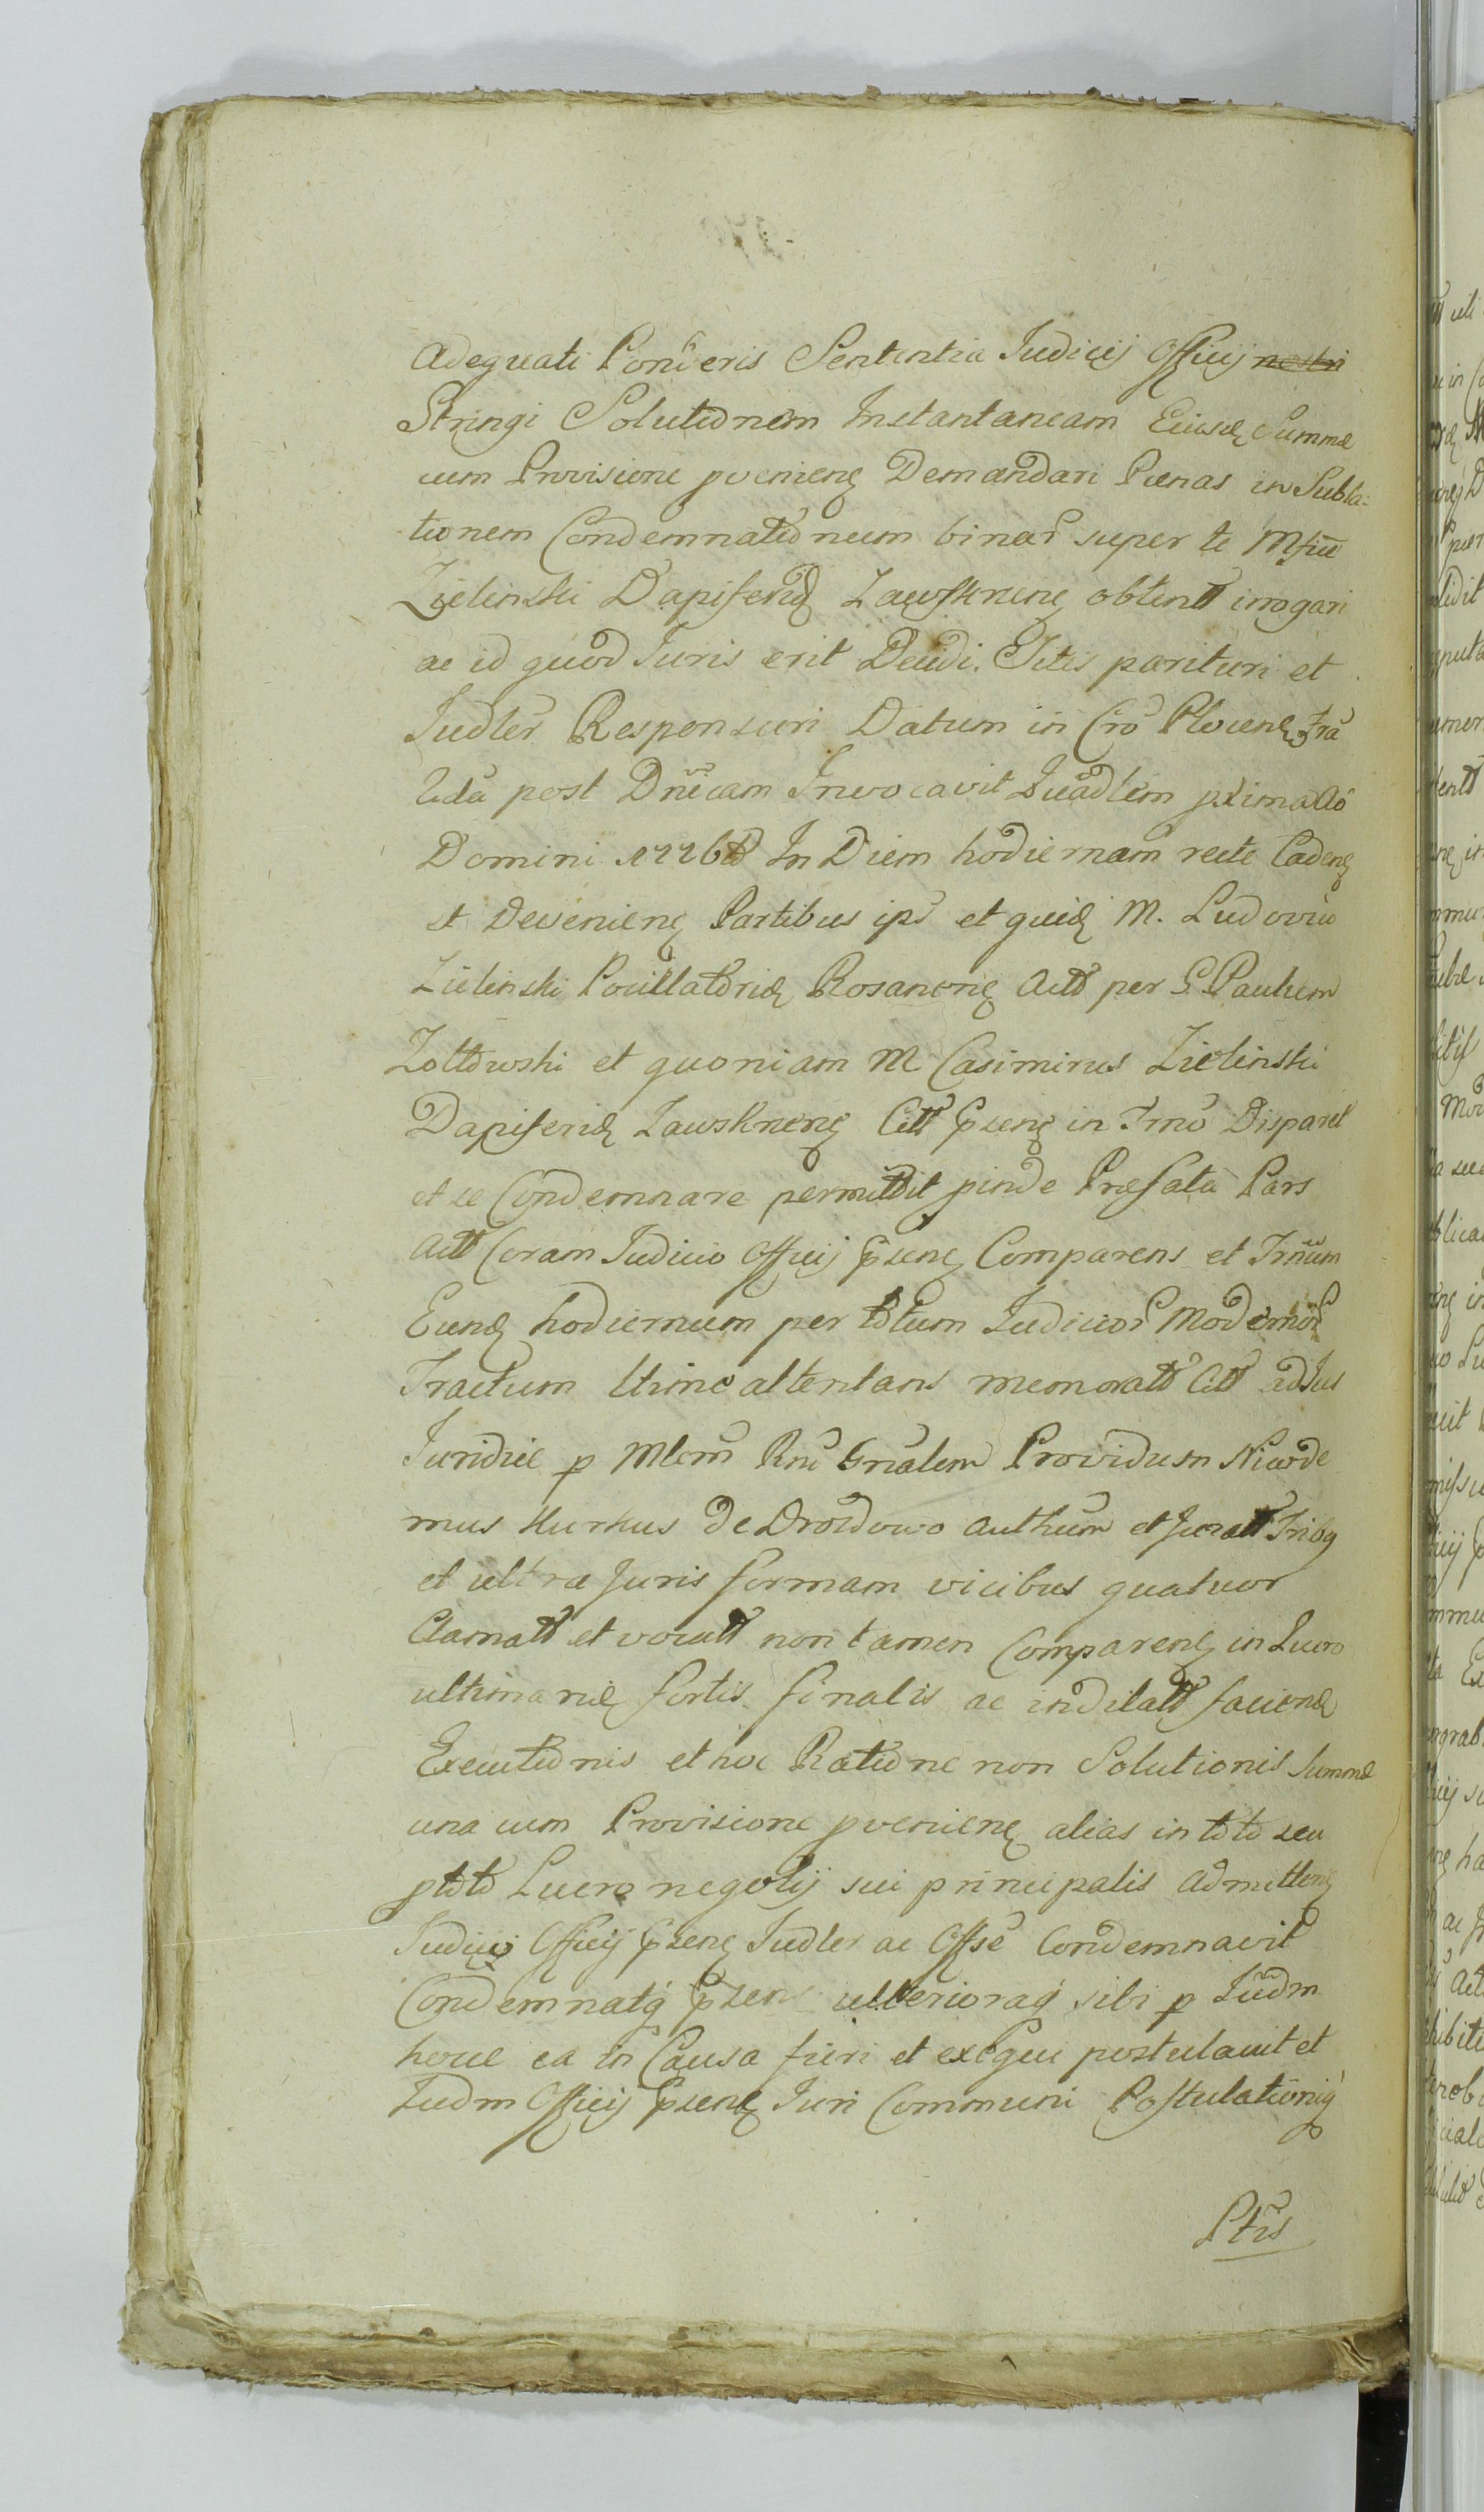 Adequati Ponderis Sententia Judicij Officij nostri
Stringi Solutionem Instantaneam Eiusd Summæ
cum Provisione pvenieng Demandari Pœnas in Subla-
tionem Condemnationum binar super te Mfico
Zielinski Dapiferid Zawskrneng obtentt irrogari
ac id quod Juris erit Decidi. Sitis parituri et
Judler Responsuri Datum in Cro Plocens Fra
2da post Dnicam Invocavit Quadlem pxima Ao
Domini 1776to In Diem hodiernam recte Cadeng
et Devenieng Partibus ips et quid M. Ludovico
Zielinski Pocillatorid Rosaneng Actt per G. Paulum
Zoltowski et quoniam M Casimirus Zielinski
Dapiferid Zawskrneng Citt pseng in Trno Disparet
et se Condemnare permittit pinde Præfata Pars
Actt Coram Judicio Officij pseng Comparens et Trnum
Eund hodiernum per totum Judicior Modernor
Tractum hinc attentans memoratt Citt ad Jus
Juridice p Mlem Rni Gnalem Providum Nicode
mus Kurkus de Drozdowo authum et Juratt Tribq
et ultra Juris formam vicibus quatuor
Clamatt et vocatt non tamen Compareng in Lucro
ultimarid fortis finalis ac indilatt faciend
Executionis et hoc Ratione non Solutionis Summæ
una cum Provisione pvenieng alias in toto seu
ptoto Lucro negotij sui principalis admitteng
Judicij Officij pseng Judler ac Offse Condemnavit
Condemnatq pseng ulterioraq sibi p Judm
hocce ea in Causa fieri et exequi postulavit et
Judm Officij pseng Juri Communi Postulationiq
Ptis